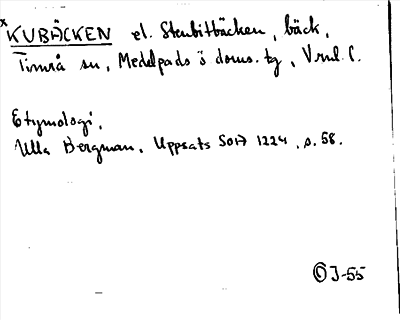 x KUBÄCKEN el. Stenbitbäcken, bäck,
Timrå sn, Medelpads ö doms. tg, Vrnl. C.
Etymologi.
Ulla Bergman, Uppsats SOIA 1224, s. 58.
© J-55